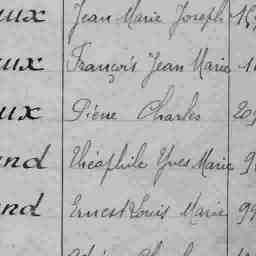 aux Jean Marie Joseph
aux François Jean Marie
aux Pierre Charles 20
and Théophile Yves Marie 9
and Ernest Louis Marie 99